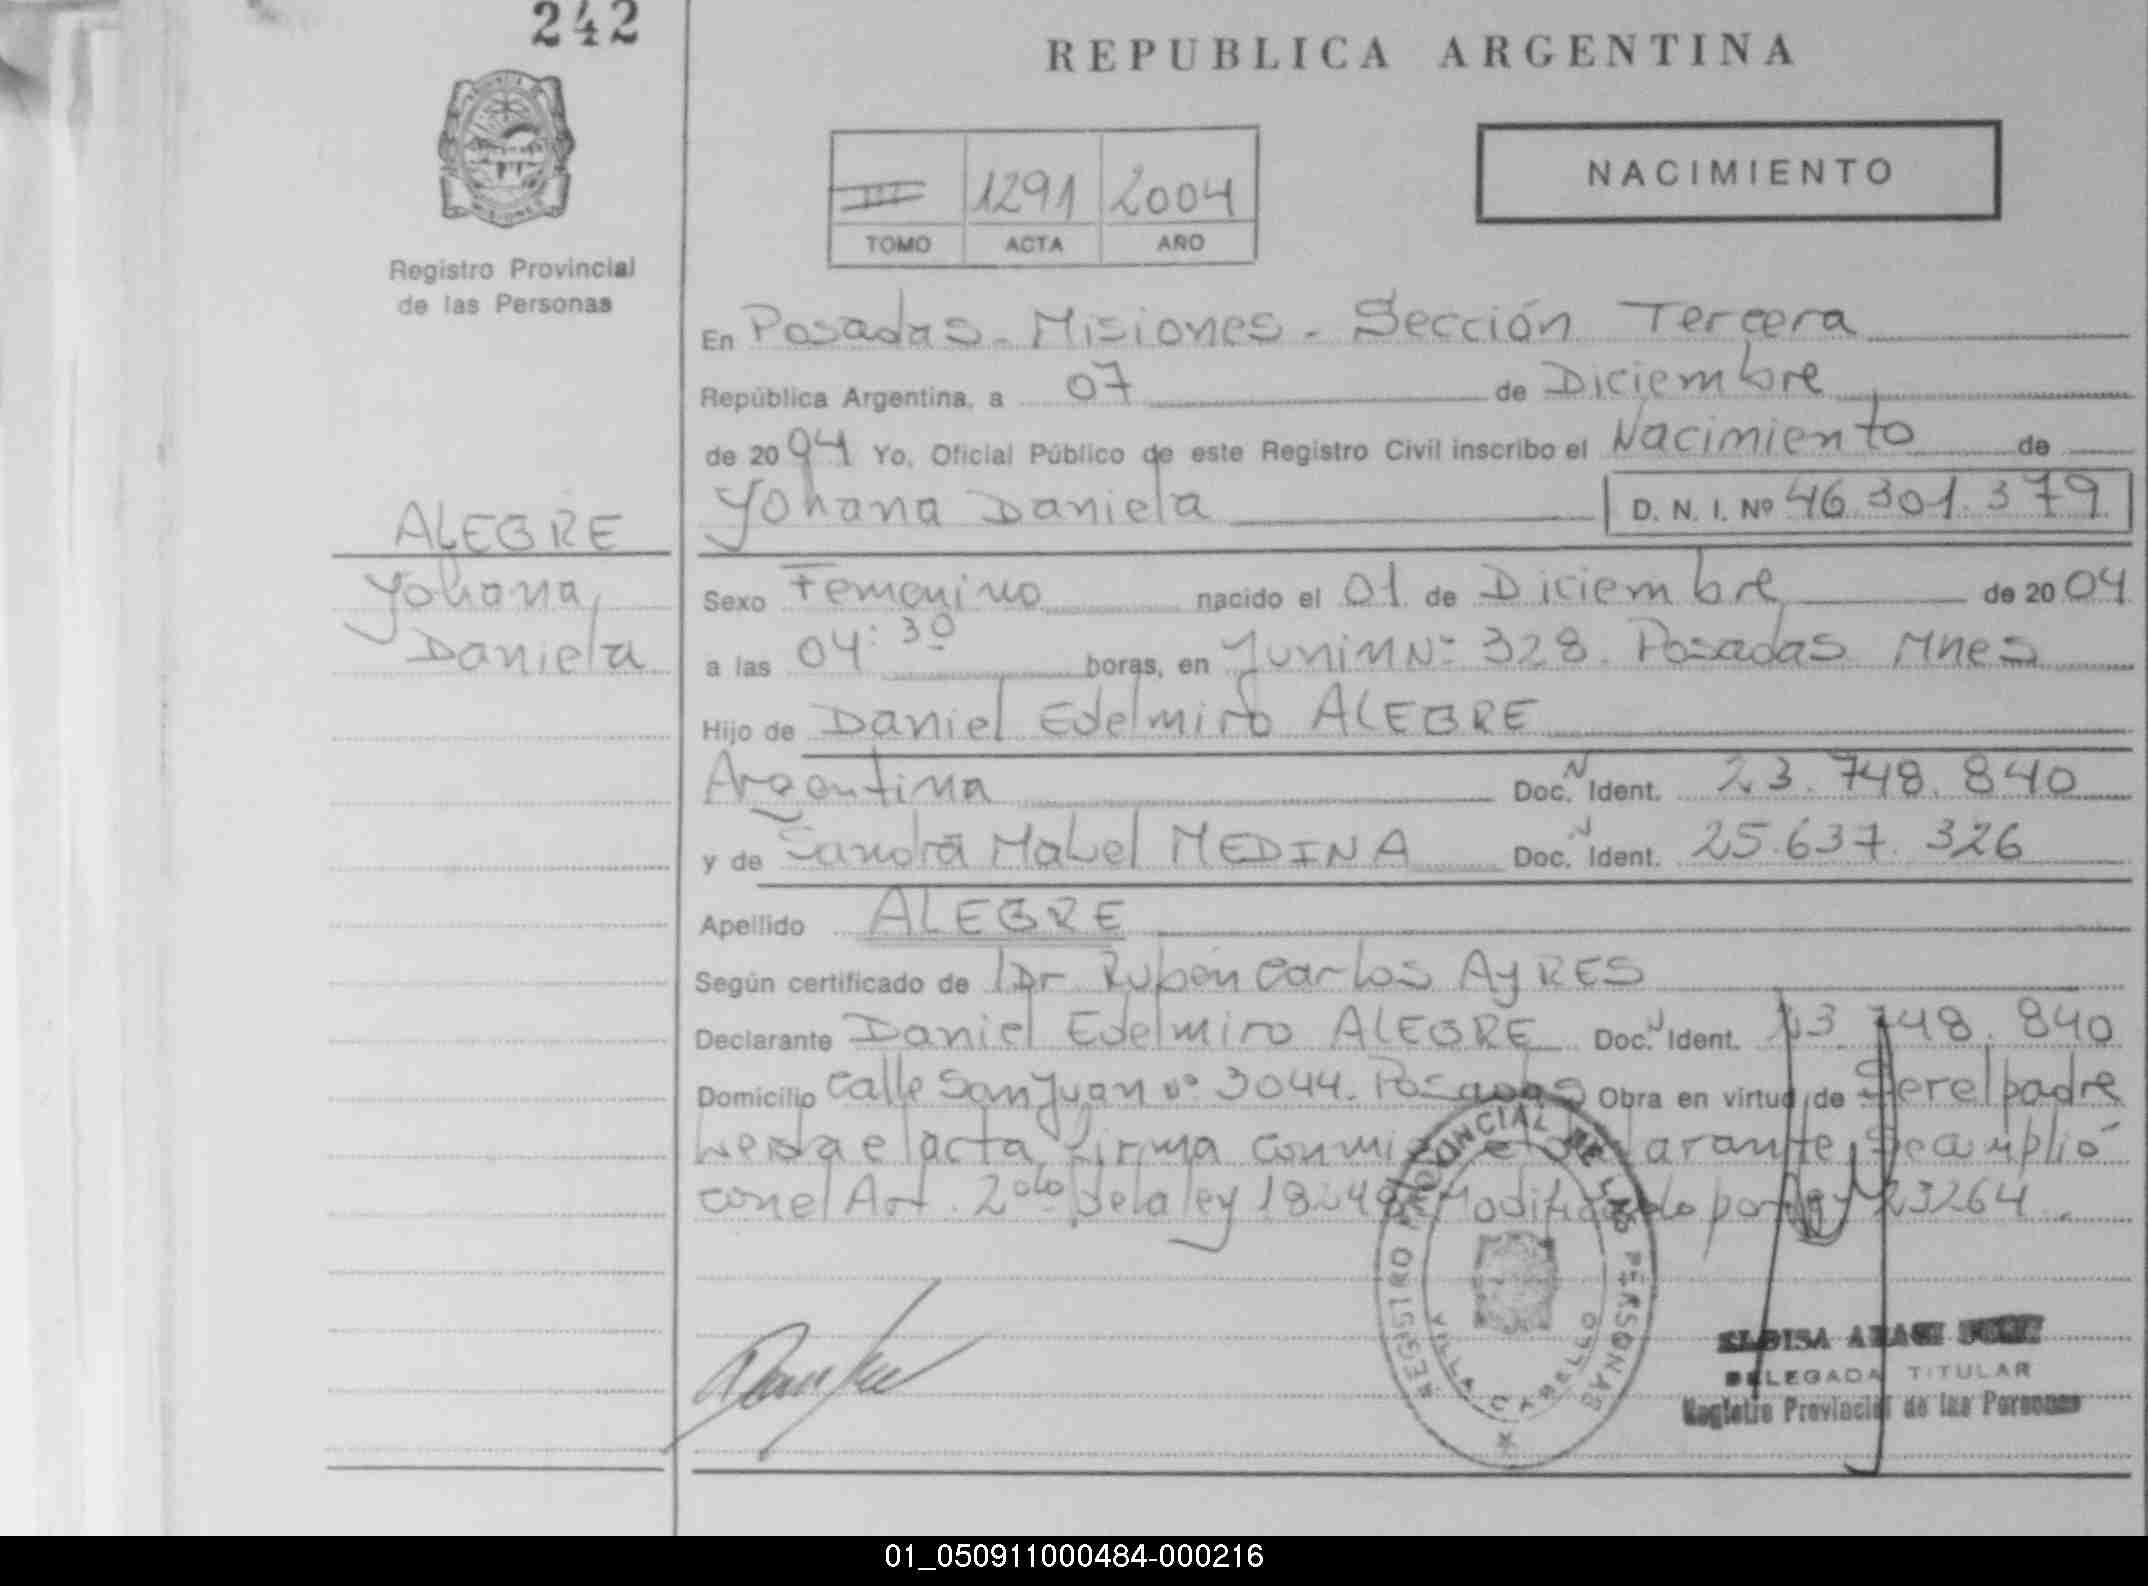 242
REPUBLICA ARGENTINA
NACIMIENTO
III 1291 2004
TOMO ACTA AÑO
Registro Provincial
de las Personas
En Posadas - Misiones - Sección Tercera
República Argentina, a 07 de Diciembre
de 2004 Yo, Oficial Público de este Registro Civil inscribo el Nacimiento de
Yohana Daniela D. N. I. Nº 46.301.379
ALEGRE
Yohana
Daniela
Sexo Femenino nacido el 01 de Diciembre de 2004
a las 04:30 horas, en Junin Nº 328. Posadas Mnes
Hijo de Daniel Edelmiro ALEGRE
Argentina Doc. N Ident. 23.748.840
y de Sandra Mabel MEDINA Doc. N Ident. 25.637.326
Apellido ALEGRE
Según certificado de Dr Ruben Carlos AYRES
Declarante Daniel Edelmiro ALEGRE Doc. N Ident. 23.748.840
Domicilio Calle San Juan Nº 3044. Posadas Obra en virtud de Ser el padre
el acta, firma conmigo el declarante, Se cumplió
con el Art. 2do de la ley 18248 Modificado por ley 23264.
REGISTRO PROVINCIAL DE LAS PERSONAS
VILLA CABELLO
DELEGADA TITULAR
Registro Provincial de las Personas
01_050911000484-000216